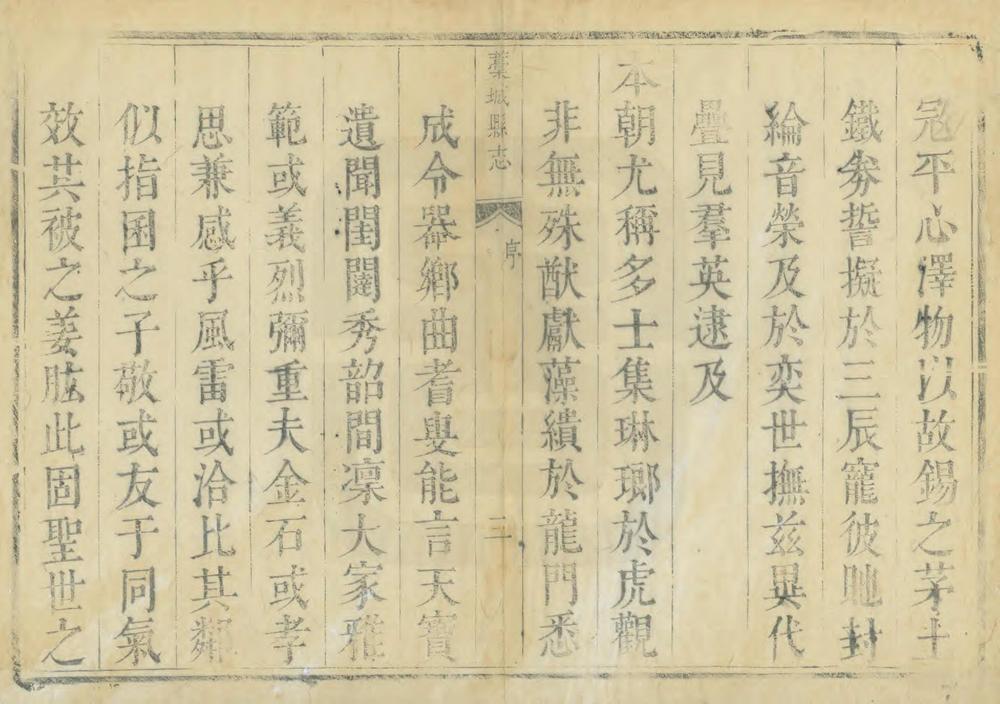 冠平心澤物以故錫之茅土
鐵券誓擬於三辰寵彼貤封
綸音榮及於奕世撫兹異代
疊見羣英逮及
本朝尤稱多士集琳瑯於虎觀
非無殊猷獻藻繢於龍門悉
藁城縣志 序 二
成令器鄉曲耆叟能言天寶
遺聞閨闥秀韶間凛大家雅
範或義烈彌重夫金石或孝
思兼感乎風雷或洽比其鄰
似指囷之子敬或友于同氣
效共被之姜肱此固聖世之